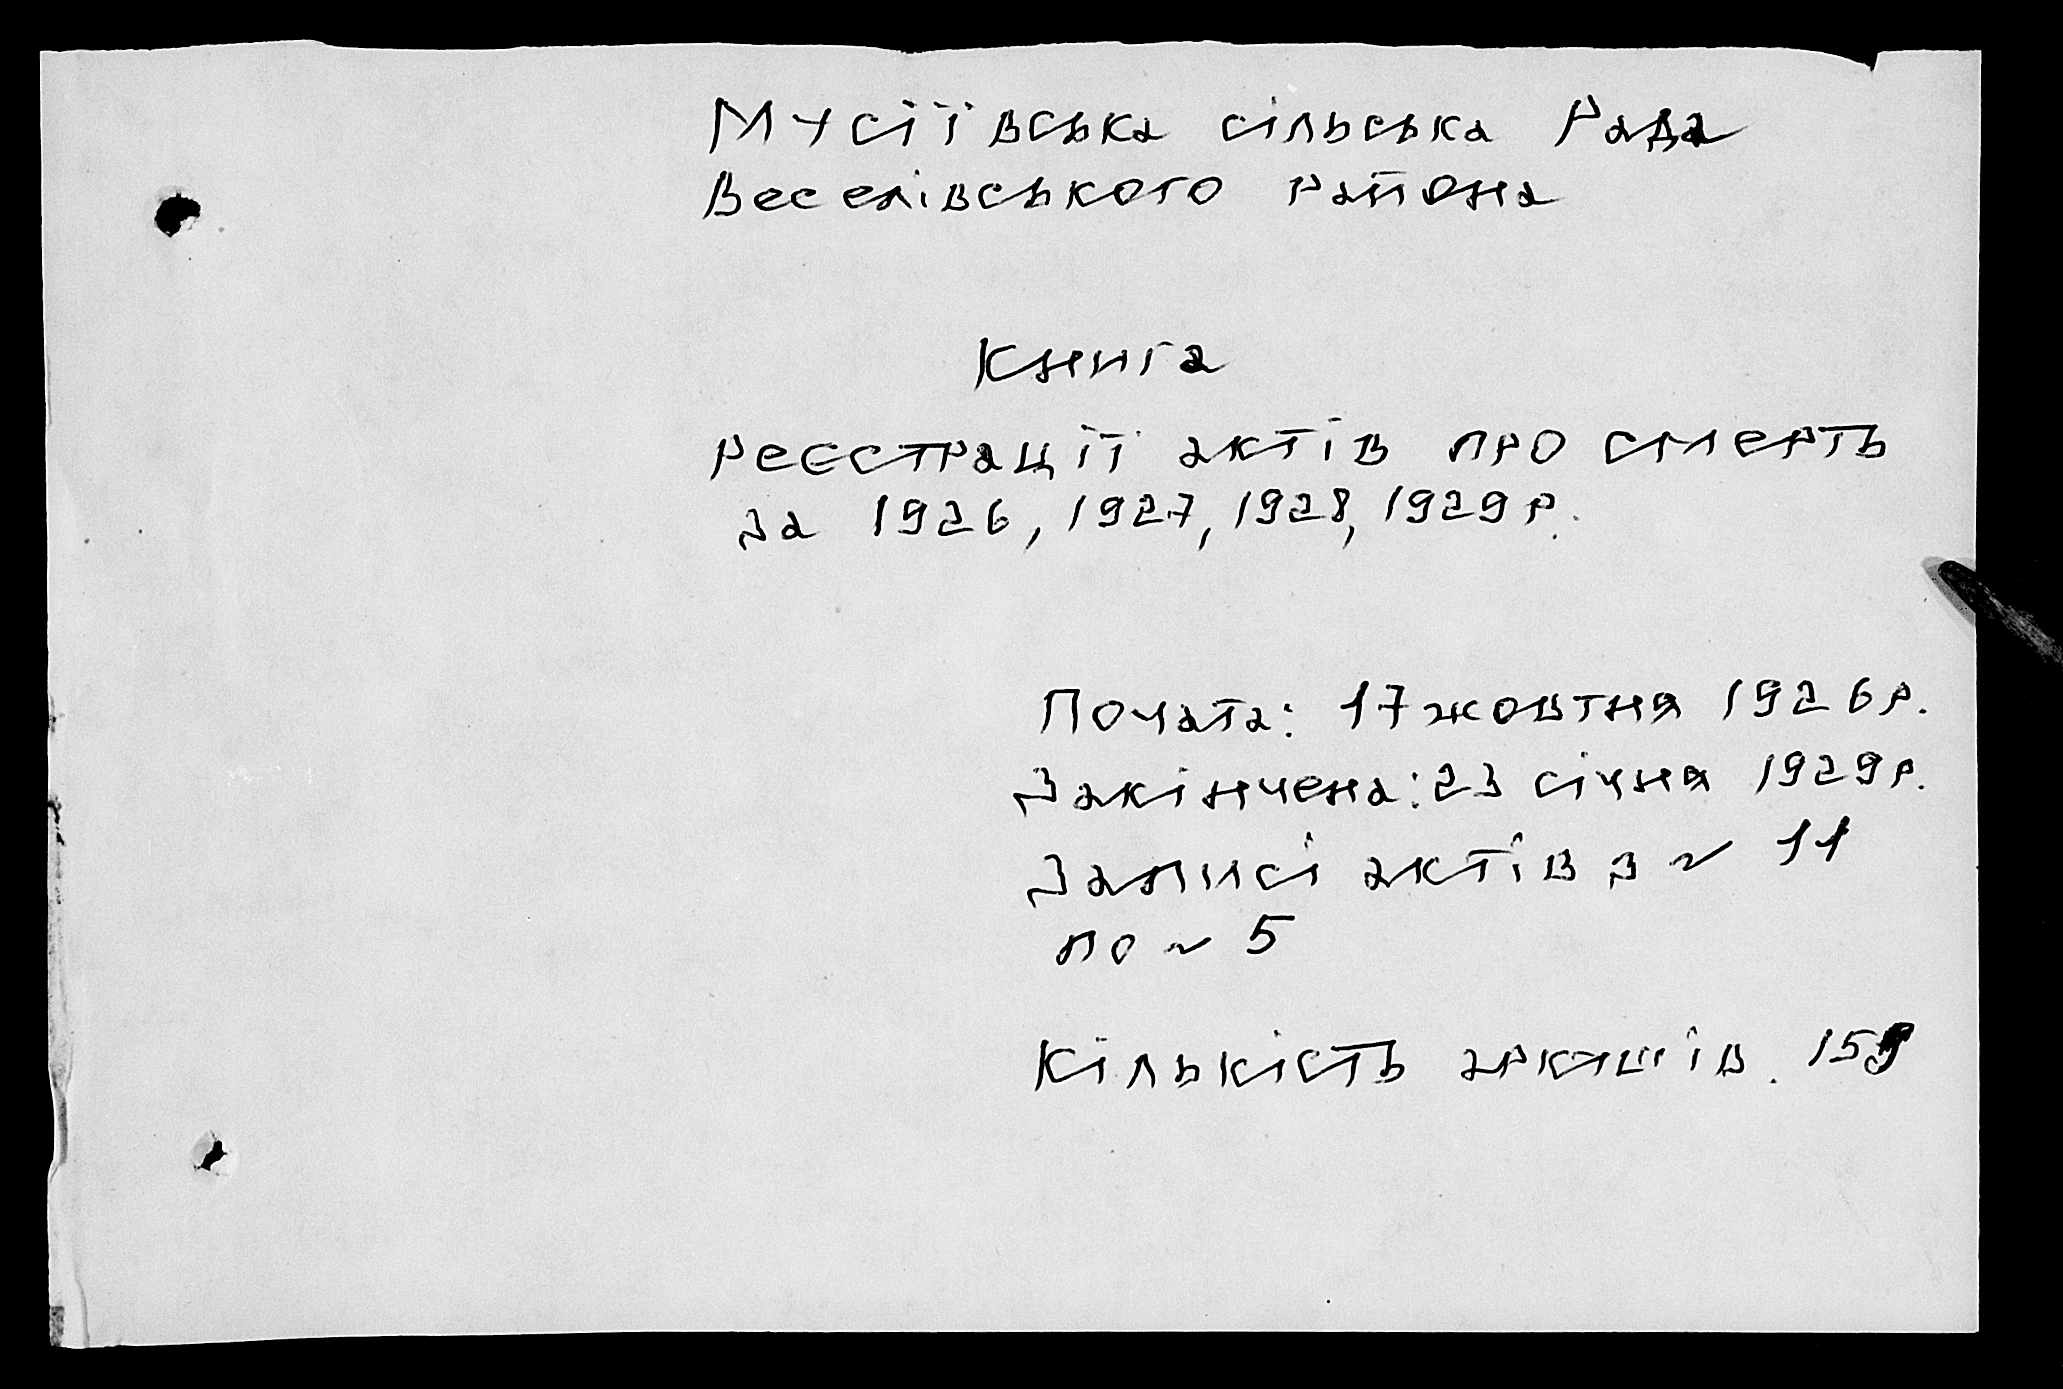 Мусіївська сільська Рада
Веселівського района
Книга
реєстрації актів про смерть
за 1926, 1927, 1928, 1929 р.
Почата: 17 жовтня 1926 р.
Закінчена: 23 січня 1929 р.
Записі актів з ~ 11
по ~ 5
Кількість аркушів. 159